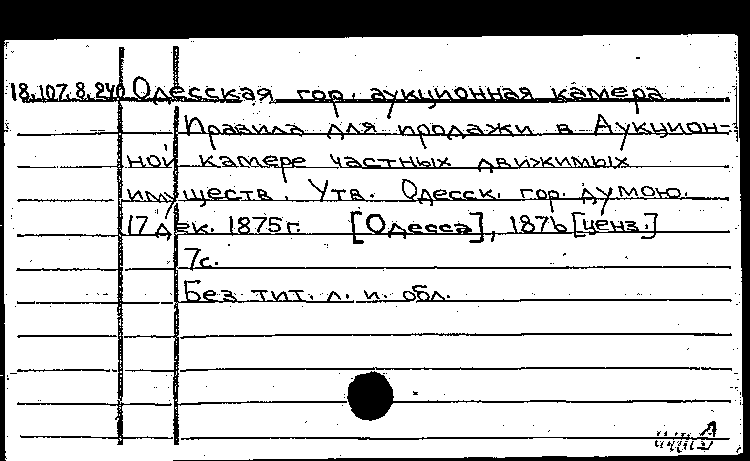 18.107.8.240 Одесская гор. аукционная камера
Правила для продажи в Аукцион-
ной камере частных движимых
имуществ. Утв. Одесск. гор. думою.
17 дек. 1875 г. [Одесса], 1876 [ценз.]
7с.
Без тит. л. и. обл.